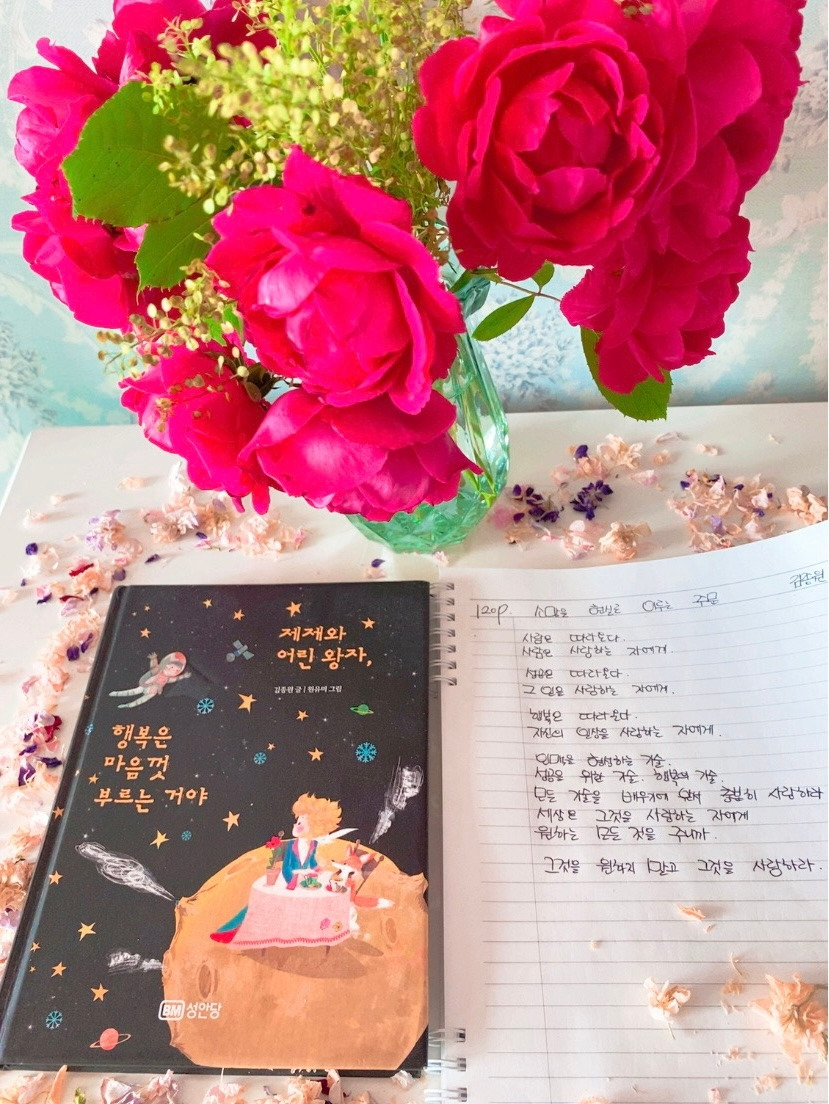 제제와
어린 왕자,
김종원 글 | 원유미 그림
행복은
마음껏
부르는 거야
BM 성안당
김종원
120p. 소망을 현실로 이루는 주문
사람은 따라온다.
사람은 사랑하는 자에게.
성공은 따라온다.
그 일을 사랑하는 자에게.
행복은 따라온다.
자신의 일상을 사랑하는 자에게.
인맥을 형성하는 기술.
성공을 위한 기술. 행복의 기술.
모든 기술을 배우기에 앞서 충분히 사랑하라
세상은 그것을 사랑하는 자에게
원하는 모든 것을 주니까.
그것을 원하지 말고 그것을 사랑하라.